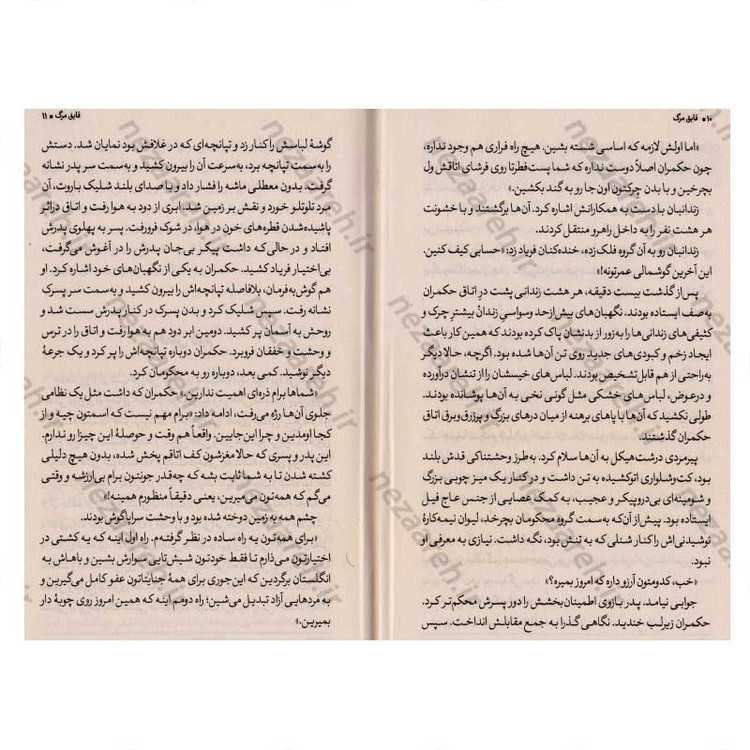 ۱۰ ▪ قایق مرگ
«اما اولش لازمه که اساسی شسته بشین. هیچ راه فراری هم وجود نداره،
چون حکمران اصلاً دوست نداره که شما پست‌فطرتا روی فرشای اتاقش ول
بچرخین و با بدن چرکتون اون جا رو به گند بکشین.»
زندانبان با دست به همکارانش اشاره کرد. آن‌ها برگشتند و با خشونت
هر هشت نفر را به داخل راهرو منتقل کردند.
زندانبان رو به آن گروه فلک‌زده، خنده‌کنان فریاد زد: «حسابی کیف کنین.
این آخرین گوشمالی عمرتونه!»
پس از گذشت بیست دقیقه، هر هشت زندانی پشت درِ اتاق حکمران
به صف ایستاده بودند. نگهبان‌های بیش‌ازحد وسواسی زندان بیشترِ چرک و
کثیفی‌های زندانی‌ها را به‌زور از بدنشان پاک کرده بودند که همین کار باعث
ایجاد زخم و کبودی‌های جدید روی تن آن‌ها شده بود. اگرچه، حالا دیگر
به‌راحتی از هم قابل‌تشخیص بودند. لباس‌های خیسشان را از تنشان درآورده
و درعوض، لباس‌های خشکی مثل گونی نخی به آن‌ها پوشانده بودند.
طولی نکشید که آن‌ها با پاهای برهنه از میان درهای بزرگ و پرزرق‌وبرق اتاق
حکمران گذشتند.
پیرمردی درشت‌هیکل به آن‌ها سلام کرد. به‌طرز وحشتناکی قدش بلند
بود، کت‌وشلواری اتوکشیده به تن داشت و در کنار یک میز چوبی بزرگ
و شومینه‌ای بی‌دروپیکر و عجیب، به کمک عصایی از جنس عاج فیل
ایستاده بود. پیش از آن‌که به سمت گروه محکومان بچرخد، لیوان نیمه‌کارهٔ
نوشیدنی‌اش را کنار شنلی که به تنش بود، نگه داشت. نیازی به معرفی او
نبود.
«خب، کدومتون آرزو داره که امروز بمیره؟»
جوابی نیامد. پدر بازوی اطمینان‌بخشش را دور پسرش محکم‌تر کرد.
حکمران زیرلب خندید. نگاهی گذرا به جمع مقابلش انداخت. سپس
قایق مرگ ▪ ۱۱
گوشهٔ لباسش را کنار زد و تپانچه‌ای که در غلافش بود نمایان شد. دستش
را به‌سمت تپانچه برد، به‌سرعت آن را بیرون کشید و به‌سمت سر پدر نشانه
گرفت. بدون معطلی ماشه را فشار داد و با صدای بلند شلیک باروت، آن
مرد تلوتلو خورد و نقش بر زمین شد. ابری از دود به هوا رفت و اتاق دراثر
پاشیده‌شدن قطره‌های خون در هوا، در شوک فرورفت. پسر به پهلوی پدرش
افتاد و در حالی‌که داشت پیکر بی‌جان پدرش را در آغوش می‌گرفت،
بی‌اختیار فریاد کشید. حکمران به یکی از نگهبان‌های خود اشاره کرد. او
هم گوش‌به‌فرمان، بلافاصله تپانچه‌اش را بیرون کشید و به‌سمت سر پسرک
نشانه رفت. سپس شلیک کرد و بدن پسرک در کنار پدرش سست شد و
روحش به آسمان پر کشید. دومین ابر دود هم به هوا رفت و اتاق را در ترس
و وحشت و خفقان فروبرد. حکمران دوباره تپانچه‌اش را پر کرد و یک جرعهٔ
دیگر نوشید. کمی بعد، دوباره رو به محکومان کرد.
«شماها برام ذره‌ای اهمیت ندارین.» حکمران که داشت مثل یک نظامی
جلوی آن‌ها رژه می‌رفت، ادامه داد: «برام مهم نیست که اسمتون چیه و از
کجا اومدین و چرا این‌جایین. واقعاً هم وقت و حوصلهٔ این چیزا رو ندارم.
این پدر و پسری که حالا مغزشون کف اتاقم پخش شده، بدون هیچ دلیلی
کشته شدن تا به شما ثابت بشه که چه‌قدر جونتون برام بی‌ارزشه و وقتی
می‌گم که همه‌تون می‌میرین، یعنی دقیقاً منظورم همینه!»
چشم همه به زمین دوخته شده بود و با وحشت سراپاگوش بودند.
«برای همه‌تون یه راه ساده در نظر گرفته‌م. راه اول اینه که یه کشتی در
اختیارتون می‌ذارم تا فقط خودتون شیش‌تایی سوارش بشین و باهاش به
انگلستان برگردین که این‌جوری برای همهٔ جنایتاتون عفو کامل می‌گیرین و
به مردهایی آزاد تبدیل می‌شین؛ راه دومم اینه که همین امروز روی چوبهٔ دار
بمیرین.»
nezaareh.ir